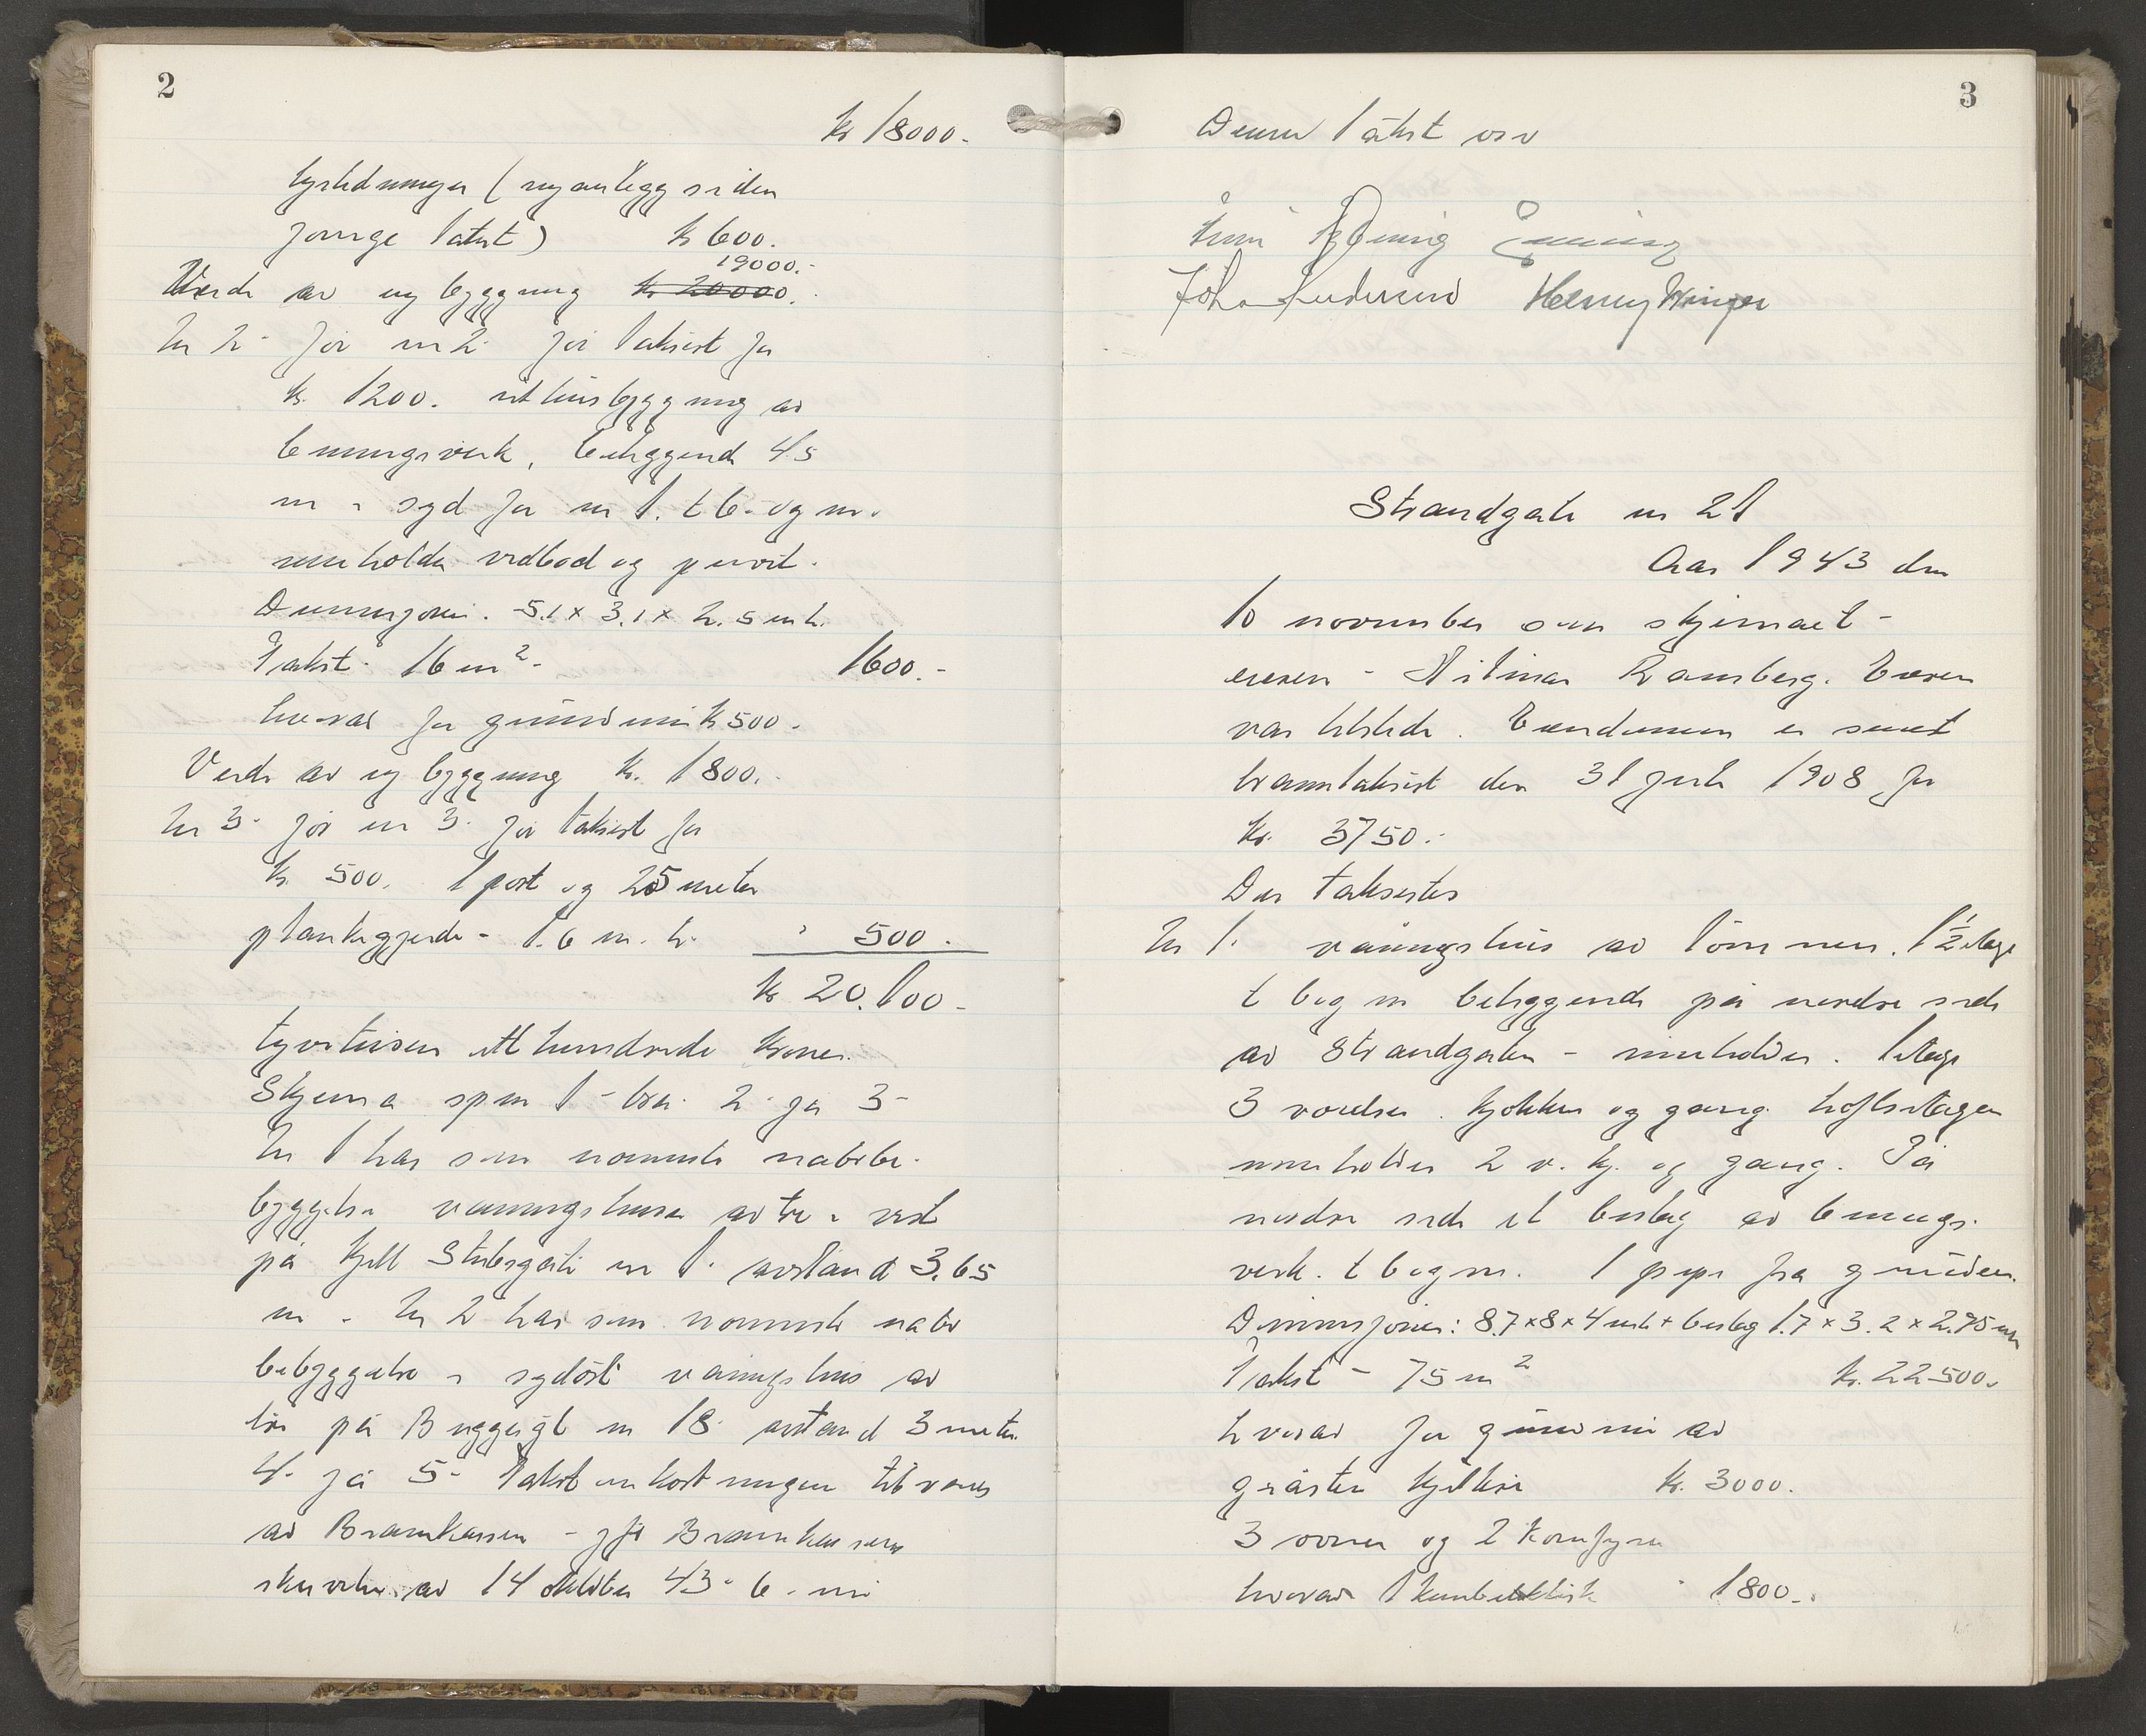 2
kr 18000.-
lysledninger (nyanlegg siden
forrige takst) kr 600.
19000.-
Verdi av ny bygging kr 20000.
Nr 2. før nr 2. før taksert for
kr. 1200. uthusbygging av
binningsverk, beliggende 4.5
m i syd for nr 1. t b. og m.
inneholder vedbod og privét.
Dimmensjoner. 5.1 x 3.1 x 2.5 m h.
Takst 16 m². 1600.-
hvorav for grunnmur kr 500.-
Verdi av ny bygging kr. 1800.-
Nr 3. før nr 3. før taksert for
kr. 500. 1 port og 25 meter
plankegjerde - 1.6 m. h. " 500.
kr 20.100-
tyvetusen ett hundrede kroner.
Skjema spm 1 - bra. 2 ja 3 -
Nr 1 har som nærmeste nabobe-
byggelse våningshuse av tre i vest
på Kjell Stubsgate nr 1. avstand 3.65
m. Nr 2 har som nærmeste nabo
bebyggelse i sydöst våningshus av
tre på Bryggegt nr 18 avstand 3 meter.
4. ja 5- Takstomkostningen utredes
av Brannkassen - jfr Brannkassens
skrivelse av 14 oktober 43. 6. nei
3
Denne takst av
John Andersen Henry Winger
Strandgate nr 21
Aar 1943 den
10 november som skjemaet -
eieren - Hilmar Ramberg. Eieren
var tilstede. Eiendommen er senest
branntaksert den 31 juli 1908 for
kr. 3750.-
Der taksertes
Nr 1. våningshus av tömmer. 1½ etage
t b og m beliggende på nordre side
av Strandgaten - inneholder. 1 etage
3 værelser. kjökken og gang. Loftsetagen
inneholder 2 v. kj. og gang. På
nordre side et bislag av binnings-
verk. t b og m. 1 pipe fra grunnen.
Dimmensjoner: 8.7 x 8 x 4 m h + bislag 1.7 x 3.2 x 2.75 m h
Takst - 75 m² kr. 22500.-
hvorav for grunnmur av
gråsten kjeller kr. 3000.
3 ovner og 2 komfyrer
hvorav 1 kombielektrisk " 1800.-